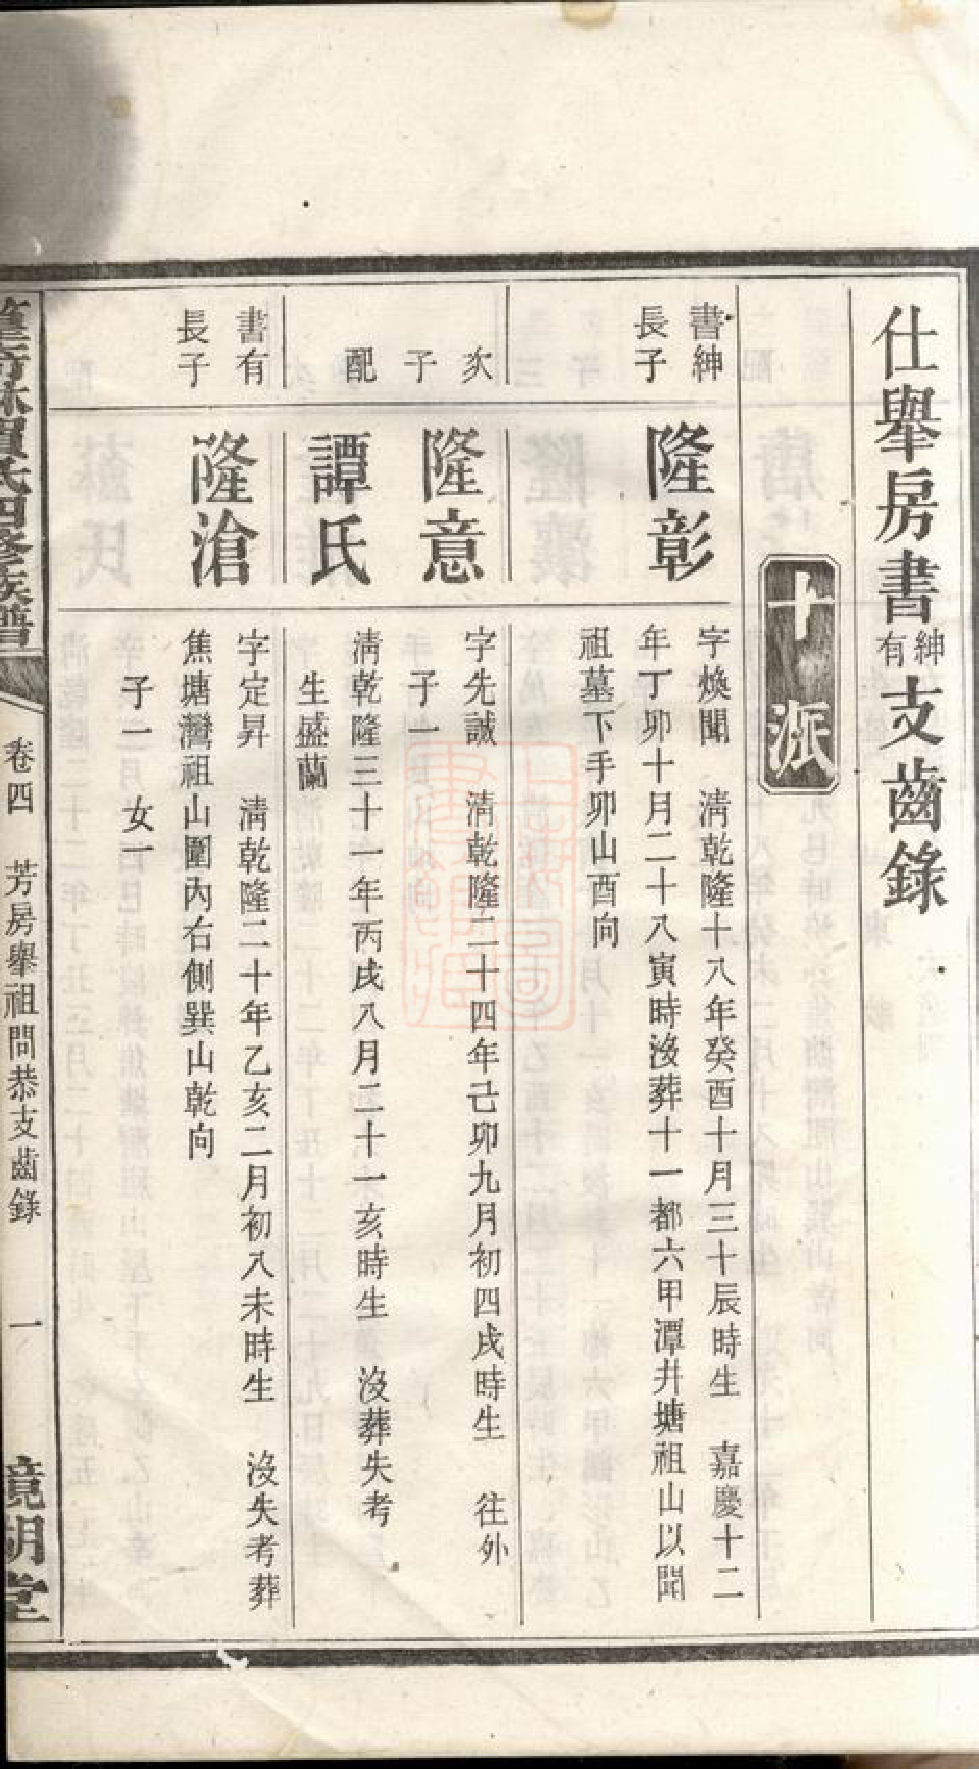 仕舉房書紳有支齒錄
十派
書紳
長子
隆彰
字煥聞 淸乾隆十八年癸酉十月三十辰時生 嘉慶十二
年丁卯十月二十八寅時沒葬十一都六甲潭井塘祖山以閗
祖墓下手卯山酉向
次
子
隆意
字先誠 淸乾隆二十四年己卯九月初四戌時生 往外
子一
配
譚氏
淸乾隆三十一年丙戌八月二十一亥時生 沒葬失考
生盛蘭
書有
長子
隆滄
字定昇 淸乾隆二十年乙亥二月初八未時生 沒失考葬
焦塘灣祖山圍內右側巽山乾向
子一 女一
氏四修族譜
卷四 芳房舉祖問恭支齒錄 一
鏡湖堂